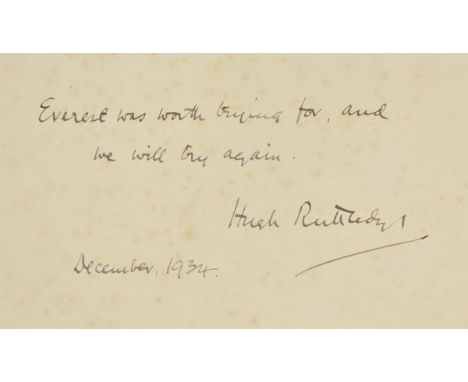 Everest was worth trying for, and
we will try again.
Hugh Ruttledge
December, 1934.